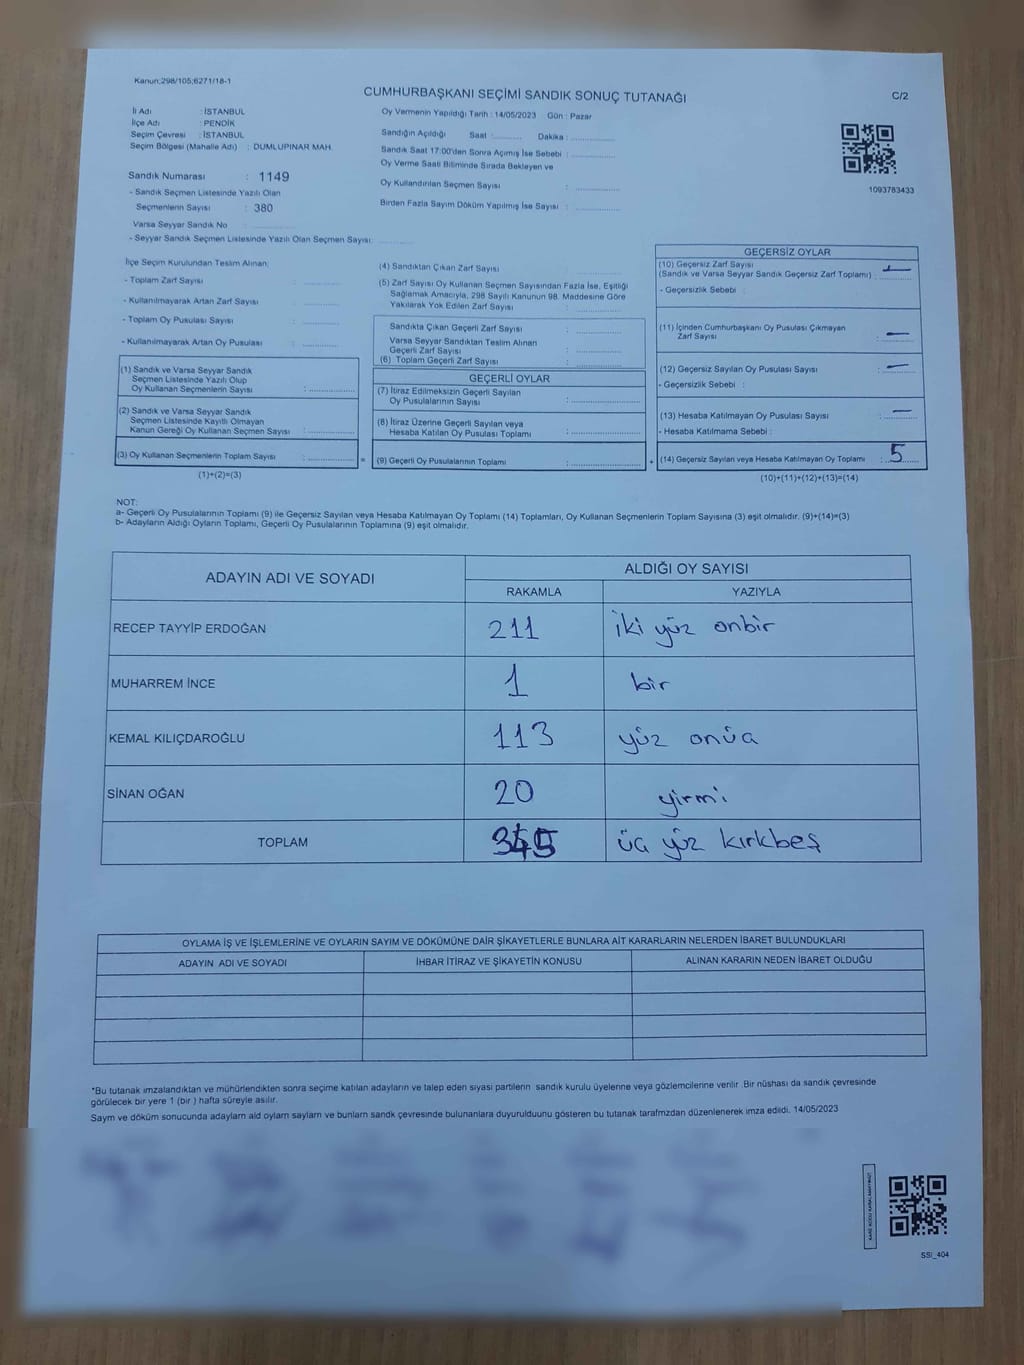 Kanun:298/105;6271/18-1
CUMHURBAŞKANI SEÇİMİ SANDIK SONUÇ TUTANAĞI
C/2
İli Adı : İSTANBUL
İlçe Adı : PENDİK
Seçim Çevresi : İSTANBUL
Seçim Bölgesi (Mahalle Adı) : DUMLUPINAR MAH.
Sandık Numarası : 1149
- Sandık Seçmen Listesinde Yazılı Olan
Seçmenlerin Sayısı : 380
Varsa Seyyar Sandık No : ............
- Seyyar Sandık Seçmen Listesinde Yazılı Olan Seçmen Sayısı: ............
Oy Vermenin Yapıldığı Tarih : 14/05/2023 Gün : Pazar
Sandığın Açıldığı Saat :.......... Dakika :...............
Sandık Saat 17:00'den Sonra Açımış İse Sebebi :...............
Oy Verme Saati Bitiminde Sırada Bekleyen ve
Oy Kullandırılan Seçmen Sayısı : ...............
Birden Fazla Sayım Döküm Yapılmış İse Sayısı : ...............
1093783433
İlçe Seçim Kurulundan Teslim Alınan;
- Toplam Zarf Sayısı : ............
- Kullanılmayarak Artan Zarf Sayısı : ............
- Toplam Oy Pusulası Sayısı : ............
- Kullanılmayarak Artan Oy Pusulası : ............
(1) Sandık ve Varsa Seyyar Sandık
Seçmen Listesinde Yazılı Olup
Oy Kullanan Seçmenlerin Sayısı : ...............
(2) Sandık ve Varsa Seyyar Sandık
Seçmen Listesinde Kayıtlı Olmayan
Kanun Gereği Oy Kullanan Seçmen Sayısı : ...............
(3) Oy Kullanan Seçmenlerin Toplam Sayısı : ...............
(1)+(2)=(3)
=
(4) Sandıktan Çıkan Zarf Sayısı : ...............
(5) Zarf Sayısı Oy Kullanan Seçmen Sayısından Fazla İse, Eşitliği
Sağlamak Amacıyla, 298 Sayılı Kanunun 98. Maddesine Göre
Yakılarak Yok Edilen Zarf Sayısı : ...............
Sandıkta Çıkan Geçerli Zarf Sayısı : ...............
Varsa Seyyar Sandıktan Teslim Alınan
Geçerli Zarf Sayısı : ...............
(6) Toplam Geçerli Zarf Sayısı : ...............
GEÇERLİ OYLAR
(7) İtiraz Edilmeksizin Geçerli Sayılan
Oy Pusulalarının Sayısı : ...............
(8) İtiraz Üzerine Geçerli Sayılan veya
Hesaba Katılan Oy Pusulası Toplamı : ...............
(9) Geçerli Oy Pusulalarının Toplamı : ...............
+
GEÇERSİZ OYLAR
(10) Geçersiz Zarf Sayısı
(Sandık ve Varsa Seyyar Sandık Geçersiz Zarf Toplamı) : —
- Geçersizlik Sebebi :
(11) İçinden Cumhurbaşkanı Oy Pusulası Çıkmayan
Zarf Sayısı : —
(12) Geçersiz Sayılan Oy Pusulası Sayısı : —
- Geçersizlik Sebebi :
(13) Hesaba Katılmayan Oy Pusulası Sayısı : —
- Hesaba Katılmama Sebebi :
(14) Geçersiz Sayılan veya Hesaba Katılmayan Oy Toplamı : 5
(10)+(11)+(12)+(13)=(14)
NOT:
a- Geçerli Oy Pusulalarının Toplamı (9) ile Geçersiz Sayılan veya Hesaba Katılmayan Oy Toplamı (14) Toplamları, Oy Kullanan Seçmenlerin Toplam Sayısına (3) eşit olmalıdır. (9)+(14)=(3)
b- Adayların Aldığı Oyların Toplamı, Geçerli Oy Pusulalarının Toplamına (9) eşit olmalıdır.
ADAYIN ADI VE SOYADI
ALDIĞI OY SAYISI
RAKAMLA YAZIYLA
RECEP TAYYİP ERDOĞAN 211 iki yüz onbir
MUHARREM İNCE 1 bir
KEMAL KILIÇDAROĞLU 113 yüz onüç
SİNAN OĞAN 20 yirmi
TOPLAM 345 üç yüz kırkbeş
OYLAMA İŞ VE İŞLEMLERİNE VE OYLARIN SAYIM VE DÖKÜMÜNE DAİR ŞİKAYETLERLE BUNLARA AİT KARARLARIN NELERDEN İBARET BULUNDUKLARI
ADAYIN ADI VE SOYADI İHBAR İTİRAZ VE ŞİKAYETİN KONUSU ALINAN KARARIN NEDEN İBARET OLDUĞU
*Bu tutanak imzalandıktan ve mühürlendikten sonra seçime katılan adayların ve talep eden siyasi partilerin sandık kurulu üyelerine veya gözlemcilerine verilir. Bir nüshası da sandık çevresinde
görülecek bir yere 1 (bir ) hafta süreyle asılır.
Saym ve döküm sonucunda adaylarn ald oylarn saylarn ve bunlarn sandk çevresinde bulunanlara duyurulduunu gösteren bu tutanak tarafmzdan düzenlenerek imza edildi. 14/05/2023
SSI_404